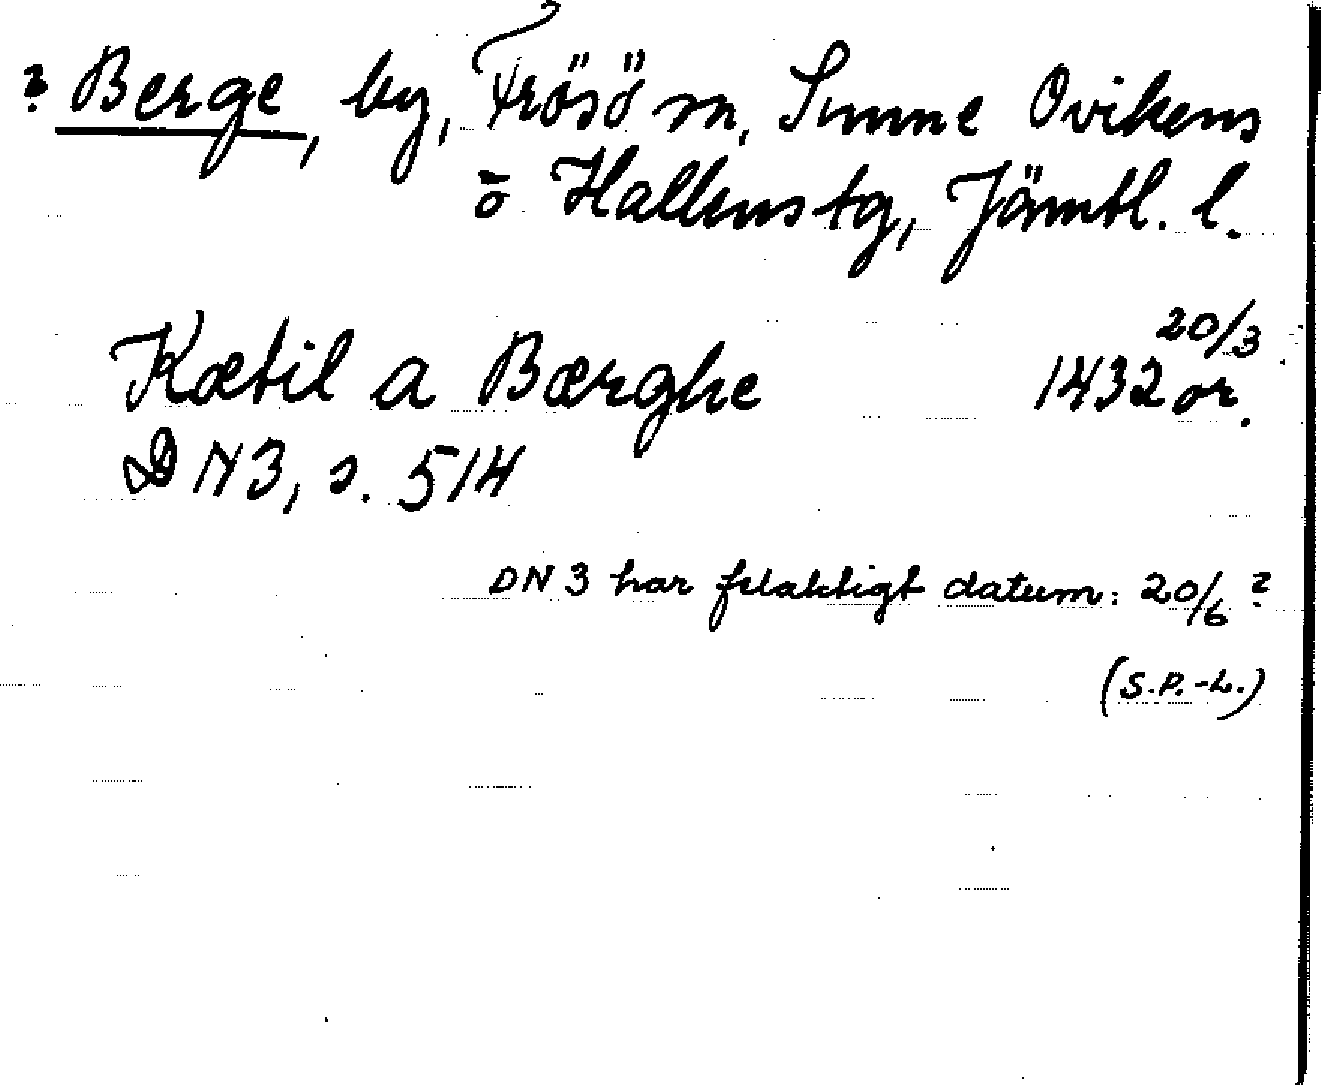 ? Berge, by, Frösö sn, Sunne Ovikens
o Hallens tg, Jämtl. l.
20/3
Kætil a Bærghe 1432 or.
DN3, s. 514
DN 3 har felaktigt datum: 20/6 ?
(S.P.-L.)